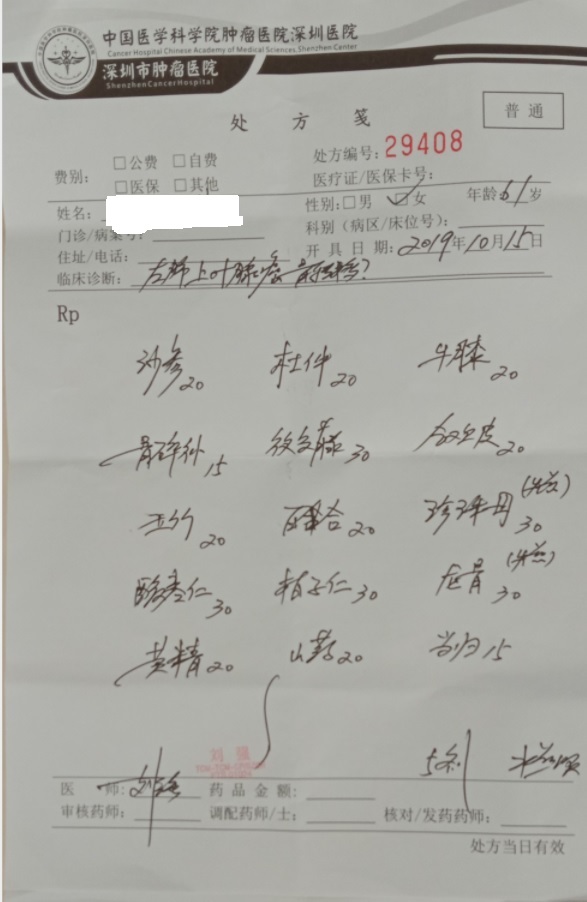 中国医学科学院肿瘤医院深圳医院
Cancer Hospital Chinese Academy of Medical Sciences, Shenzhen Center
深圳市肿瘤医院
Shenzhen Cancer Hospital
处 方 笺
普通
费别: □公费 □自费
□医保 □其他
处方编号: 29408
医疗证/医保卡号:
姓名: 性别: □男 ☑女 年龄 61 岁
门诊/病案号: 科别(病区/床位号):
住址/电话: 开具日期: 2019年10月15日
临床诊断: 左肺上叶腺癌 骨转移?
Rp
沙参20 杜仲20 牛膝20
骨碎补15 夜交藤30 合欢皮20
玉竹20 百合20 珍珠母30(先煎)
酸枣仁30 柏子仁30 龙骨30(先煎)
黄精20 山药20 当归15
5剂
刘强
医 师: 刘强 药品金额:
审核药师: 调配药师/士: 核对/发药药师:
处方当日有效